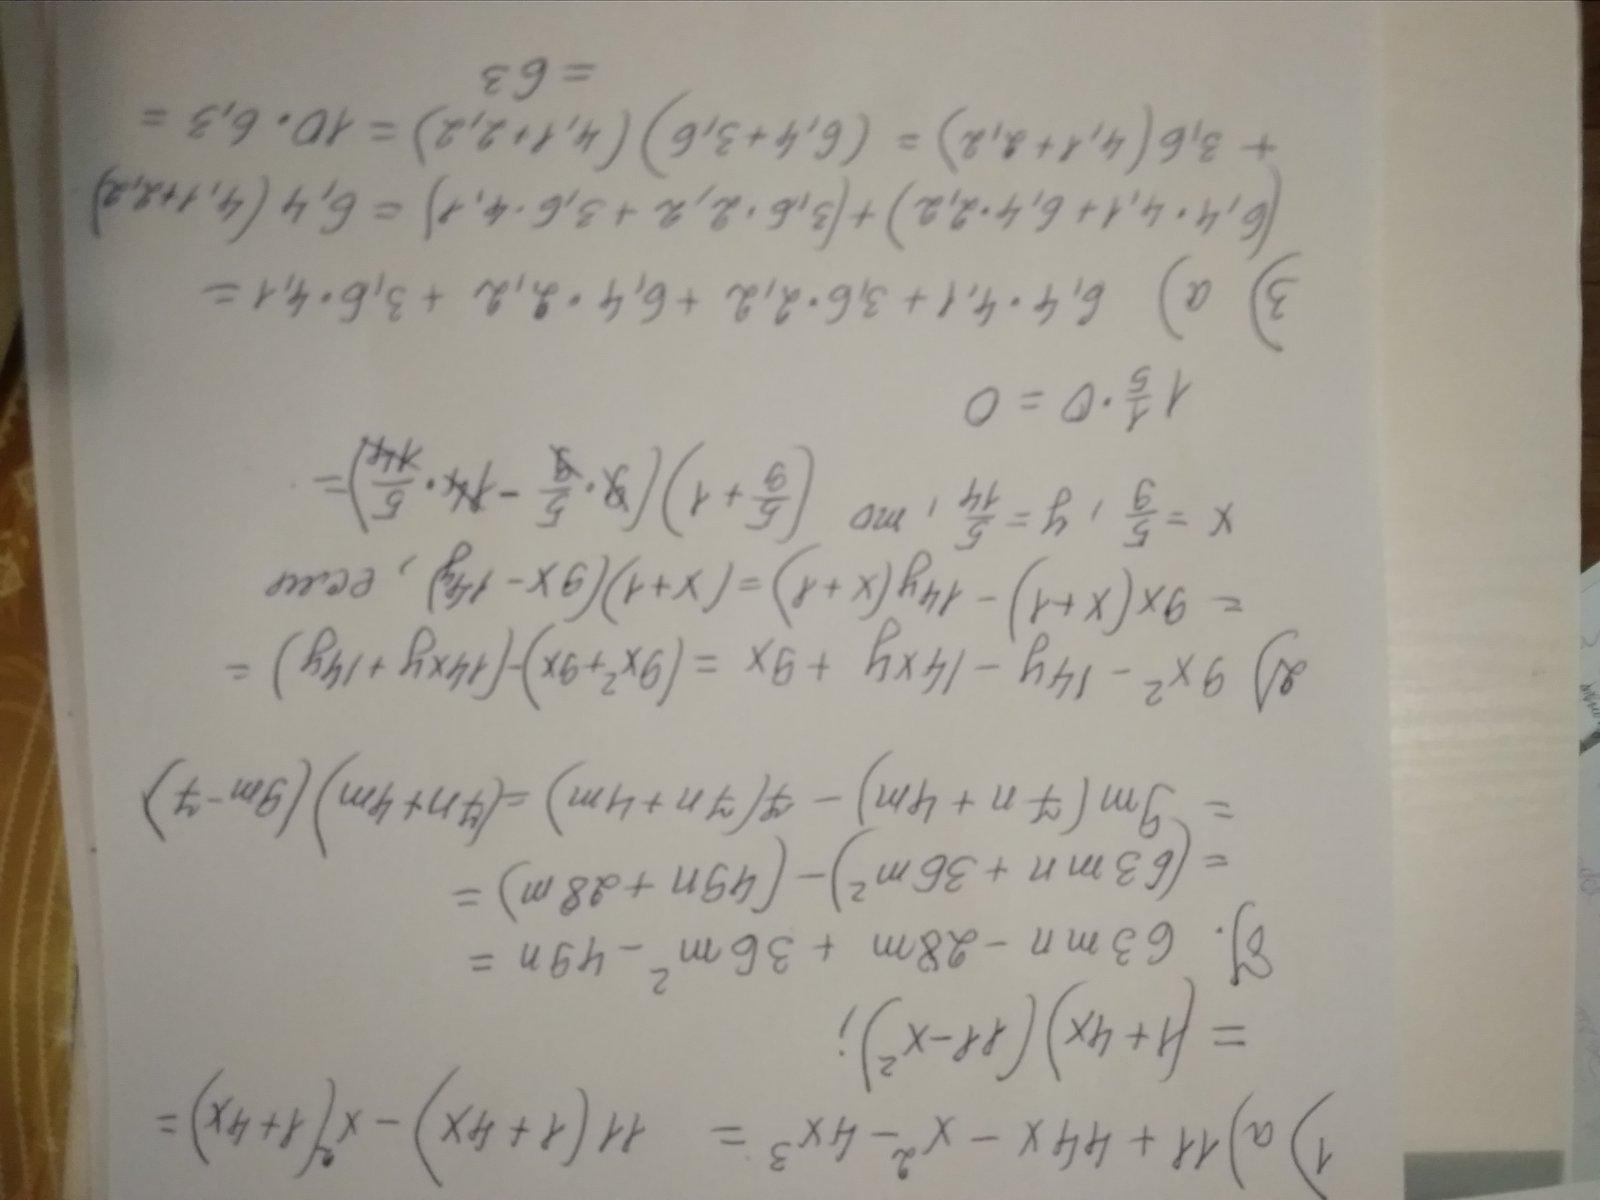 1) а) 11 + 44x - x² - 4x³ = 11(1+4x) - x²(1+4x) =
= (1+4x)(11-x²);
б). 63mn - 28m + 36m² - 49n =
= (63mn + 36m²) - (49n + 28m) =
= 9m(7n + 4m) - 7(7n + 4m) = (7n + 4m)(9m - 7)
2) 9x² - 14y - 14xy + 9x = (9x² + 9x) - (14xy + 14y) =
= 9x(x+1) - 14y(x+1) = (x+1)(9x - 14y), если
x = 5/9, y = 5/14, то (5/9 + 1)(9 · 5/9 - 14 · 5/14) =
1 1/5 · 0 = 0
3) а) 6,4 · 4,1 + 3,6 · 2,2 + 6,4 · 2,2 + 3,6 · 4,1 =
(6,4 · 4,1 + 6,4 · 2,2) + (3,6 · 2,2 + 3,6 · 4,1) = 6,4(4,1+2,2)
+ 3,6(4,1+2,2) = (6,4+3,6)(4,1+2,2) = 10 · 6,3 =
= 63